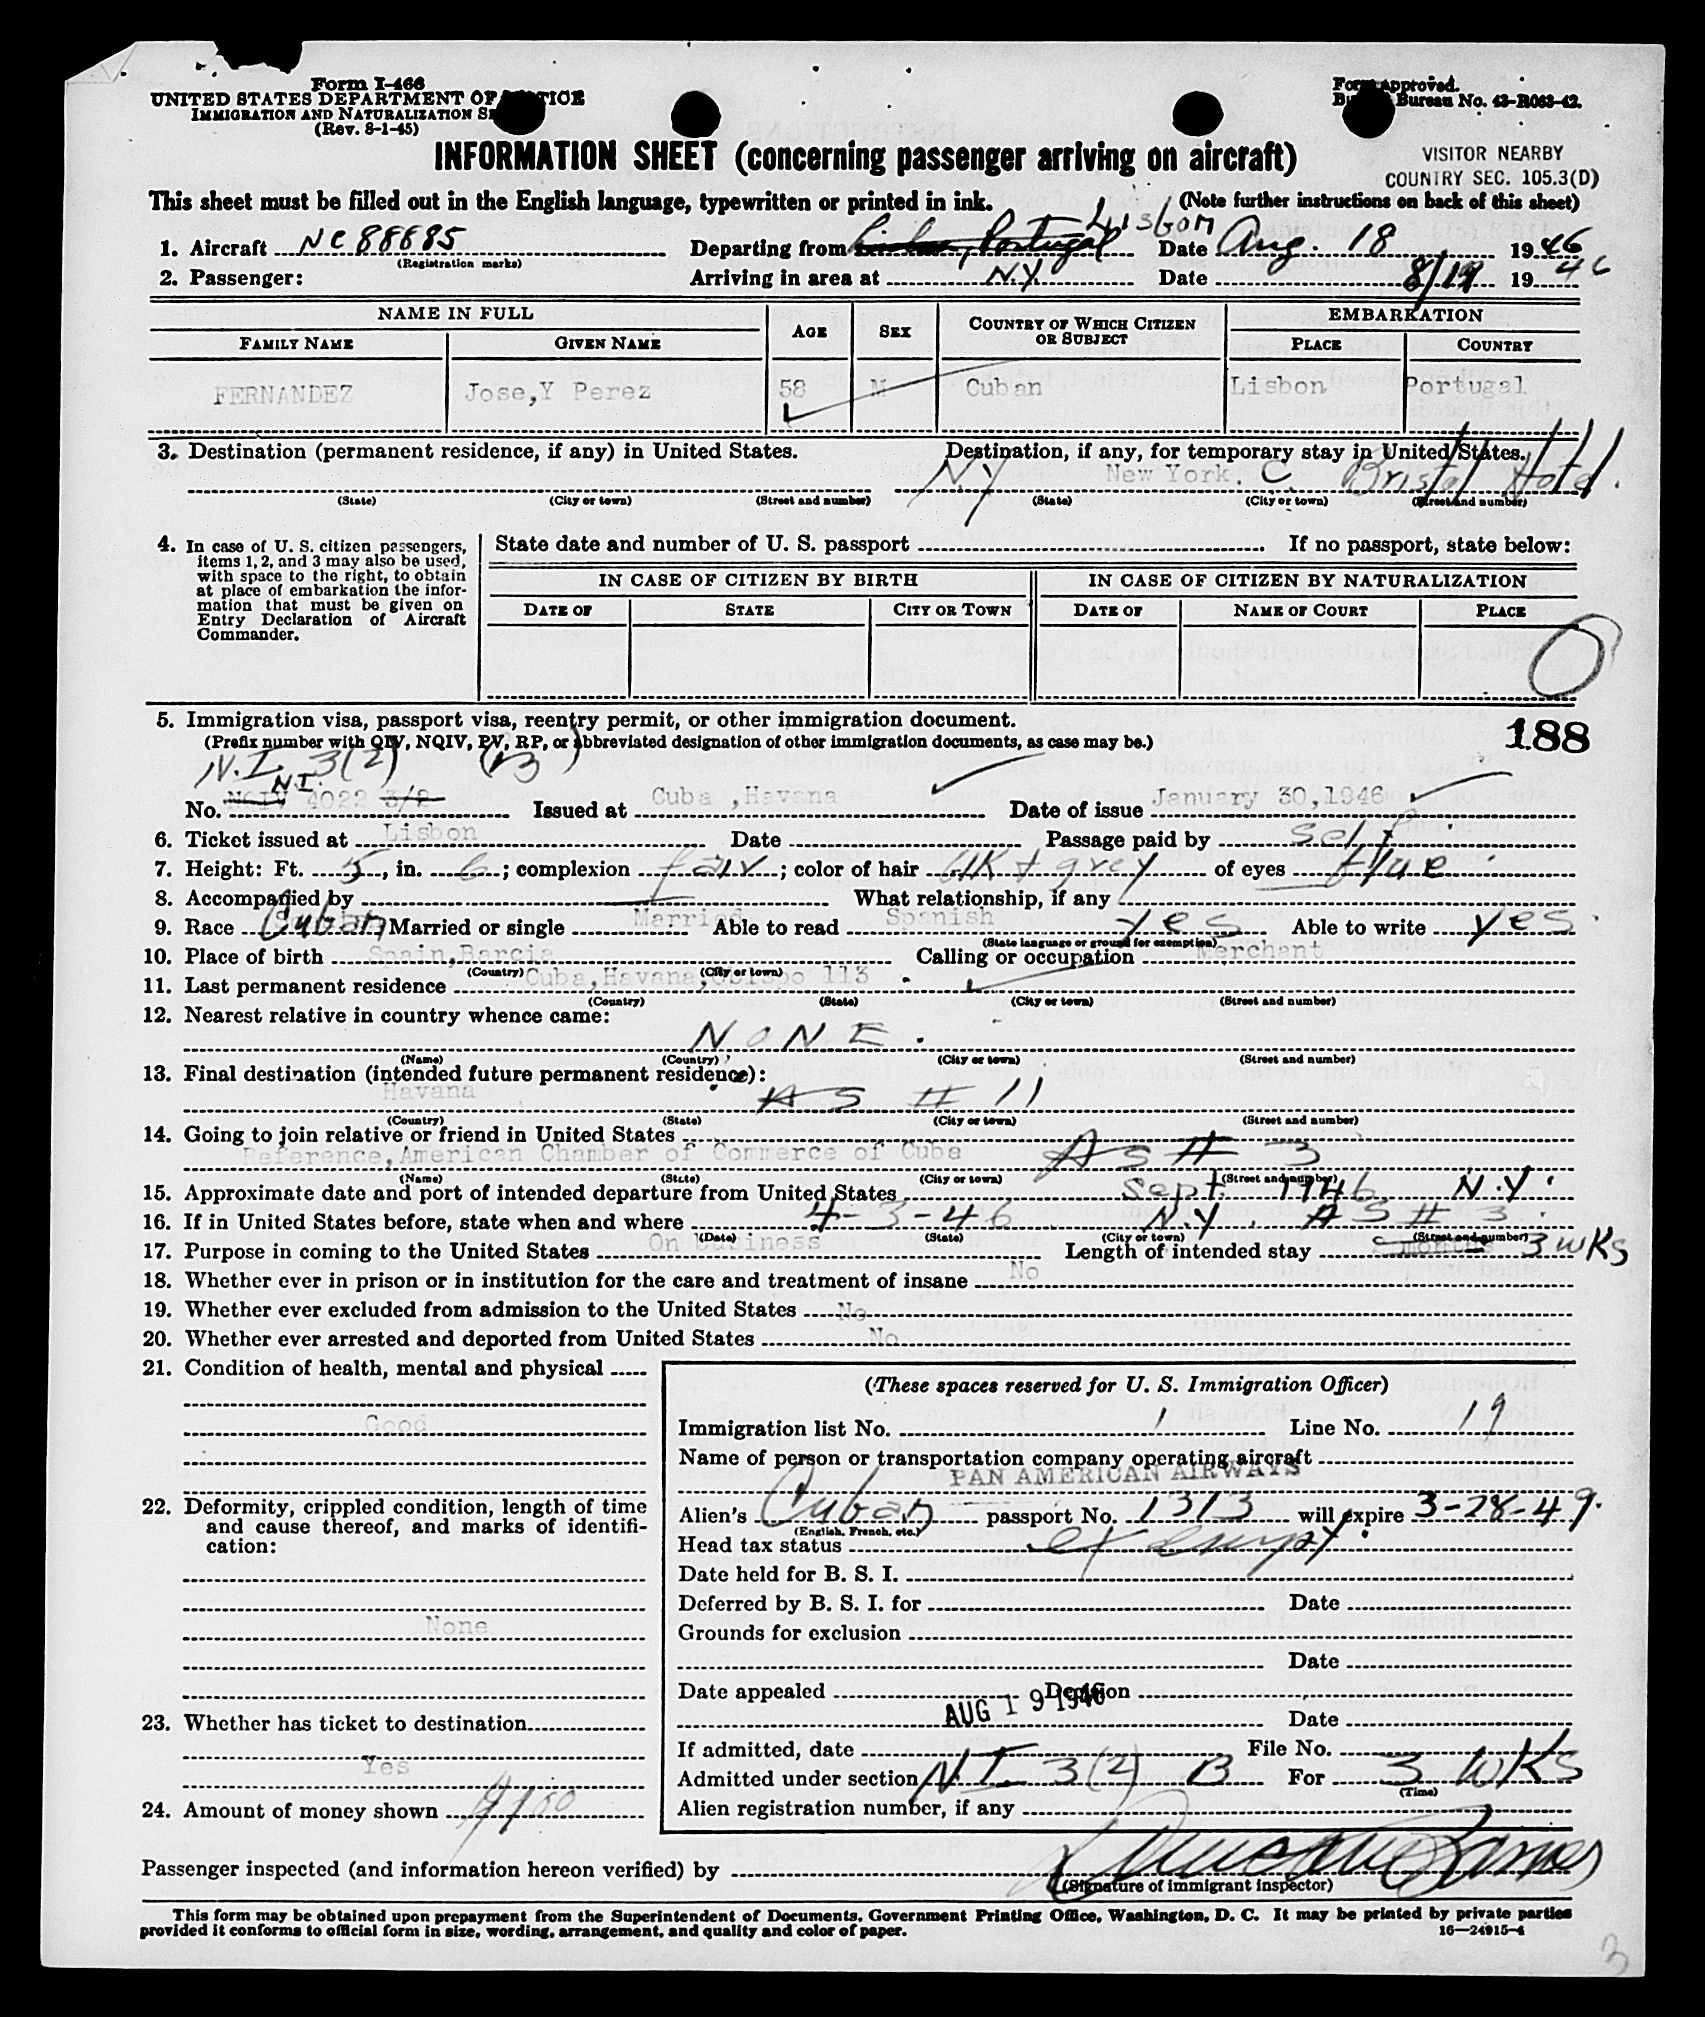 Form I-466
UNITED STATES DEPARTMENT OF JUSTICE
IMMIGRATION AND NATURALIZATION
(Rev. 8-1-45)
Form approved.
Bureau No. 43-R063-42.
INFORMATION SHEET (concerning passenger arriving on aircraft)
VISITOR NEARBY
COUNTRY SEC. 105.3(D)
This sheet must be filled out in the English language, typewritten or printed in ink.
(Note further instructions on back of this sheet)
1. Aircraft NC 88885 Departing from Portugal Lisbon Date Aug. 18 1946
(Registration marks)
2. Passenger: Arriving in area at N.Y. Date 8/19 19 46
NAME IN FULL EMBARKATION
FAMILY NAME GIVEN NAME AGE SEX COUNTRY OF WHICH CITIZEN OR SUBJECT PLACE COUNTRY
FERNANDEZ Jose,Y Perez 58 M Cuban Lisbon Portugal
3. Destination (permanent residence, if any) in United States. Destination, if any, for temporary stay in United States.
N.Y New York. C. Bristol Hotel.
(State) (City or town) (Street and number) (State) (City or town) (Street and number)
4. In case of U. S. citizen passengers,
items 1, 2, and 3 may also be used,
with space to the right, to obtain
at place of embarkation the infor-
mation that must be given on
Entry Declaration of Aircraft
Commander.
State date and number of U. S. passport If no passport, state below:
IN CASE OF CITIZEN BY BIRTH IN CASE OF CITIZEN BY NATURALIZATION
DATE OF STATE CITY OR TOWN DATE OF NAME OF COURT PLACE
0
5. Immigration visa, passport visa, reentry permit, or other immigration document. 188
(Prefix number with QIV, NQIV, PV, RP, or abbreviated designation of other immigration documents, as case may be.)
N.I. 3(2) (B)
N.I.
No. NQIV 4022 3/2 Issued at Cuba ,Havana Date of issue January 30,1946
6. Ticket issued at Lisbon Date Passage paid by self
7. Height: Ft. 5, in. 6; complexion fair; color of hair blk & grey of eyes blue.
8. Accompanied by What relationship, if any
9. Race Cuban Married or single Married Able to read Spanish yes Able to write yes.
(State language or ground for exemption)
10. Place of birth Spain,Barcia Calling or occupation Merchant
(Country) (City or town)
11. Last permanent residence Cuba,Havana,Obispo 113
(Country) (State) (City or town) (Street and number)
12. Nearest relative in country whence came:
NONE.
(Name) (Country) (City or town) (Street and number)
13. Final destination (intended future permanent residence):
Havana AS # 11
(Country) (State) (City or town) (Street and number)
14. Going to join relative or friend in United States
Reference,American Chamber of Commerce of Cuba As # 3
(Name) (State) (City or town) (Street and number)
15. Approximate date and port of intended departure from United States Sept. 1946 N.Y.
16. If in United States before, state when and where 4-3-46 N.Y. AS # 3.
(Date) (State) (City or town) (Street and number)
17. Purpose in coming to the United States On business Length of intended stay months 3 wks
18. Whether ever in prison or in institution for the care and treatment of insane No
19. Whether ever excluded from admission to the United States No
20. Whether ever arrested and deported from United States No
21. Condition of health, mental and physical
Good
22. Deformity, crippled condition, length of time
and cause thereof, and marks of identifi-
cation:
None
23. Whether has ticket to destination
Yes
24. Amount of money shown
(These spaces reserved for U. S. Immigration Officer)
Immigration list No. 1 Line No. 19
Name of person or transportation company operating aircraft
PAN AMERICAN AIRWAYS
Alien's Cuban passport No. 1313 will expire 3-28-49.
(English, French, etc.)
Head tax status exempt.
Date held for B. S. I.
Deferred by B. S. I. for Date
Grounds for exclusion
Date
Date appealed Decision
AUG 19 1946
Date
If admitted, date File No.
Admitted under section N.I. 3(2) B For 3 WKS
(Time)
Alien registration number, if any
Passenger inspected (and information hereon verified) by
(Signature of immigrant inspector)
This form may be obtained upon prepayment from the Superintendent of Documents, Government Printing Office, Washington, D. C. It may be printed by private parties
provided it conforms to official form in size, wording, arrangement, and quality and color of paper.
16—24915-4
3